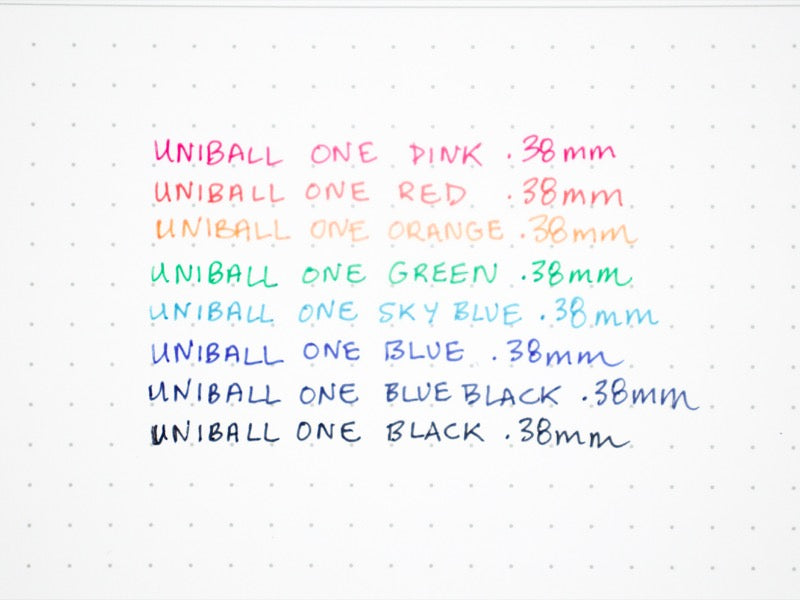 UNIBALL ONE PINK .38mm
UNIBALL ONE RED .38mm
UNIBALL ONE ORANGE .38mm
UNIBALL ONE GREEN .38mm
UNIBALL ONE SKY BLUE .38mm
UNIBALL ONE BLUE .38mm
UNIBALL ONE BLUE BLACK .38mm
UNIBALL ONE BLACK .38mm